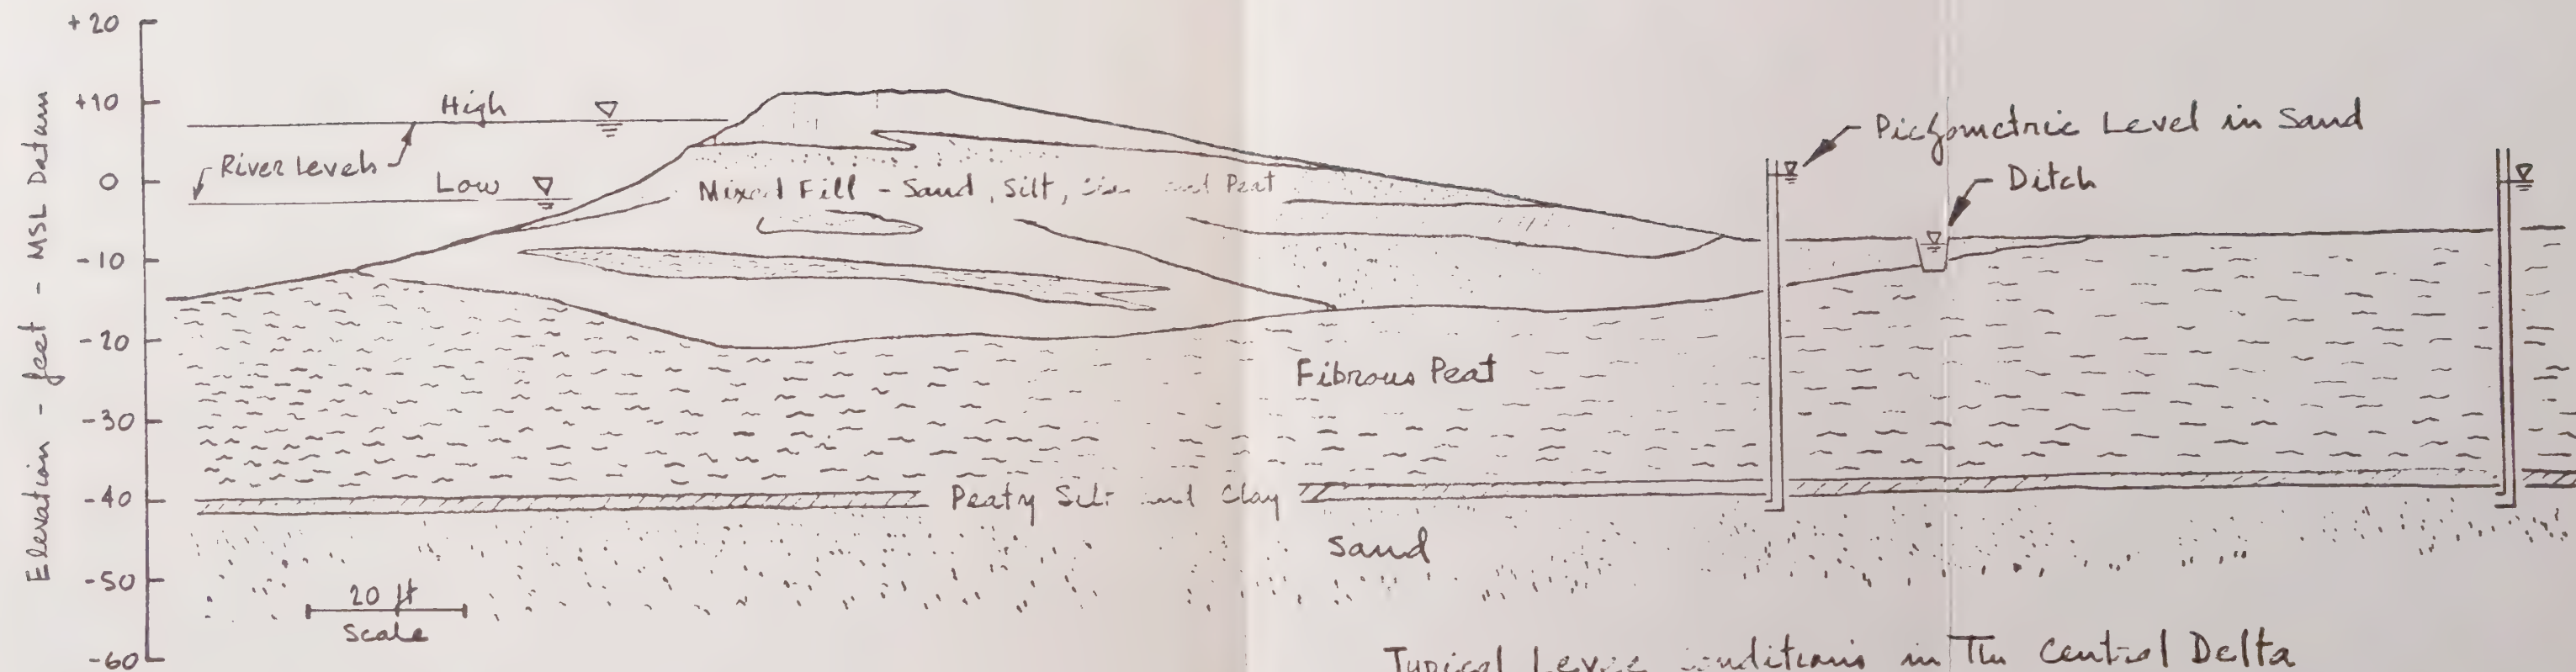 +20
+10
0
-10
-20
-30
-40
-50
-60
Elevation - feet - MSL Datum
High
River Levels
Low
Mixed Fill - Sand, Silt, and Peat
Piezometric Level in Sand
Ditch
Fibrous Peat
Peaty Silt and Clay
Sand
20 ft
Scale
Typical Levee conditions in The Central Delta